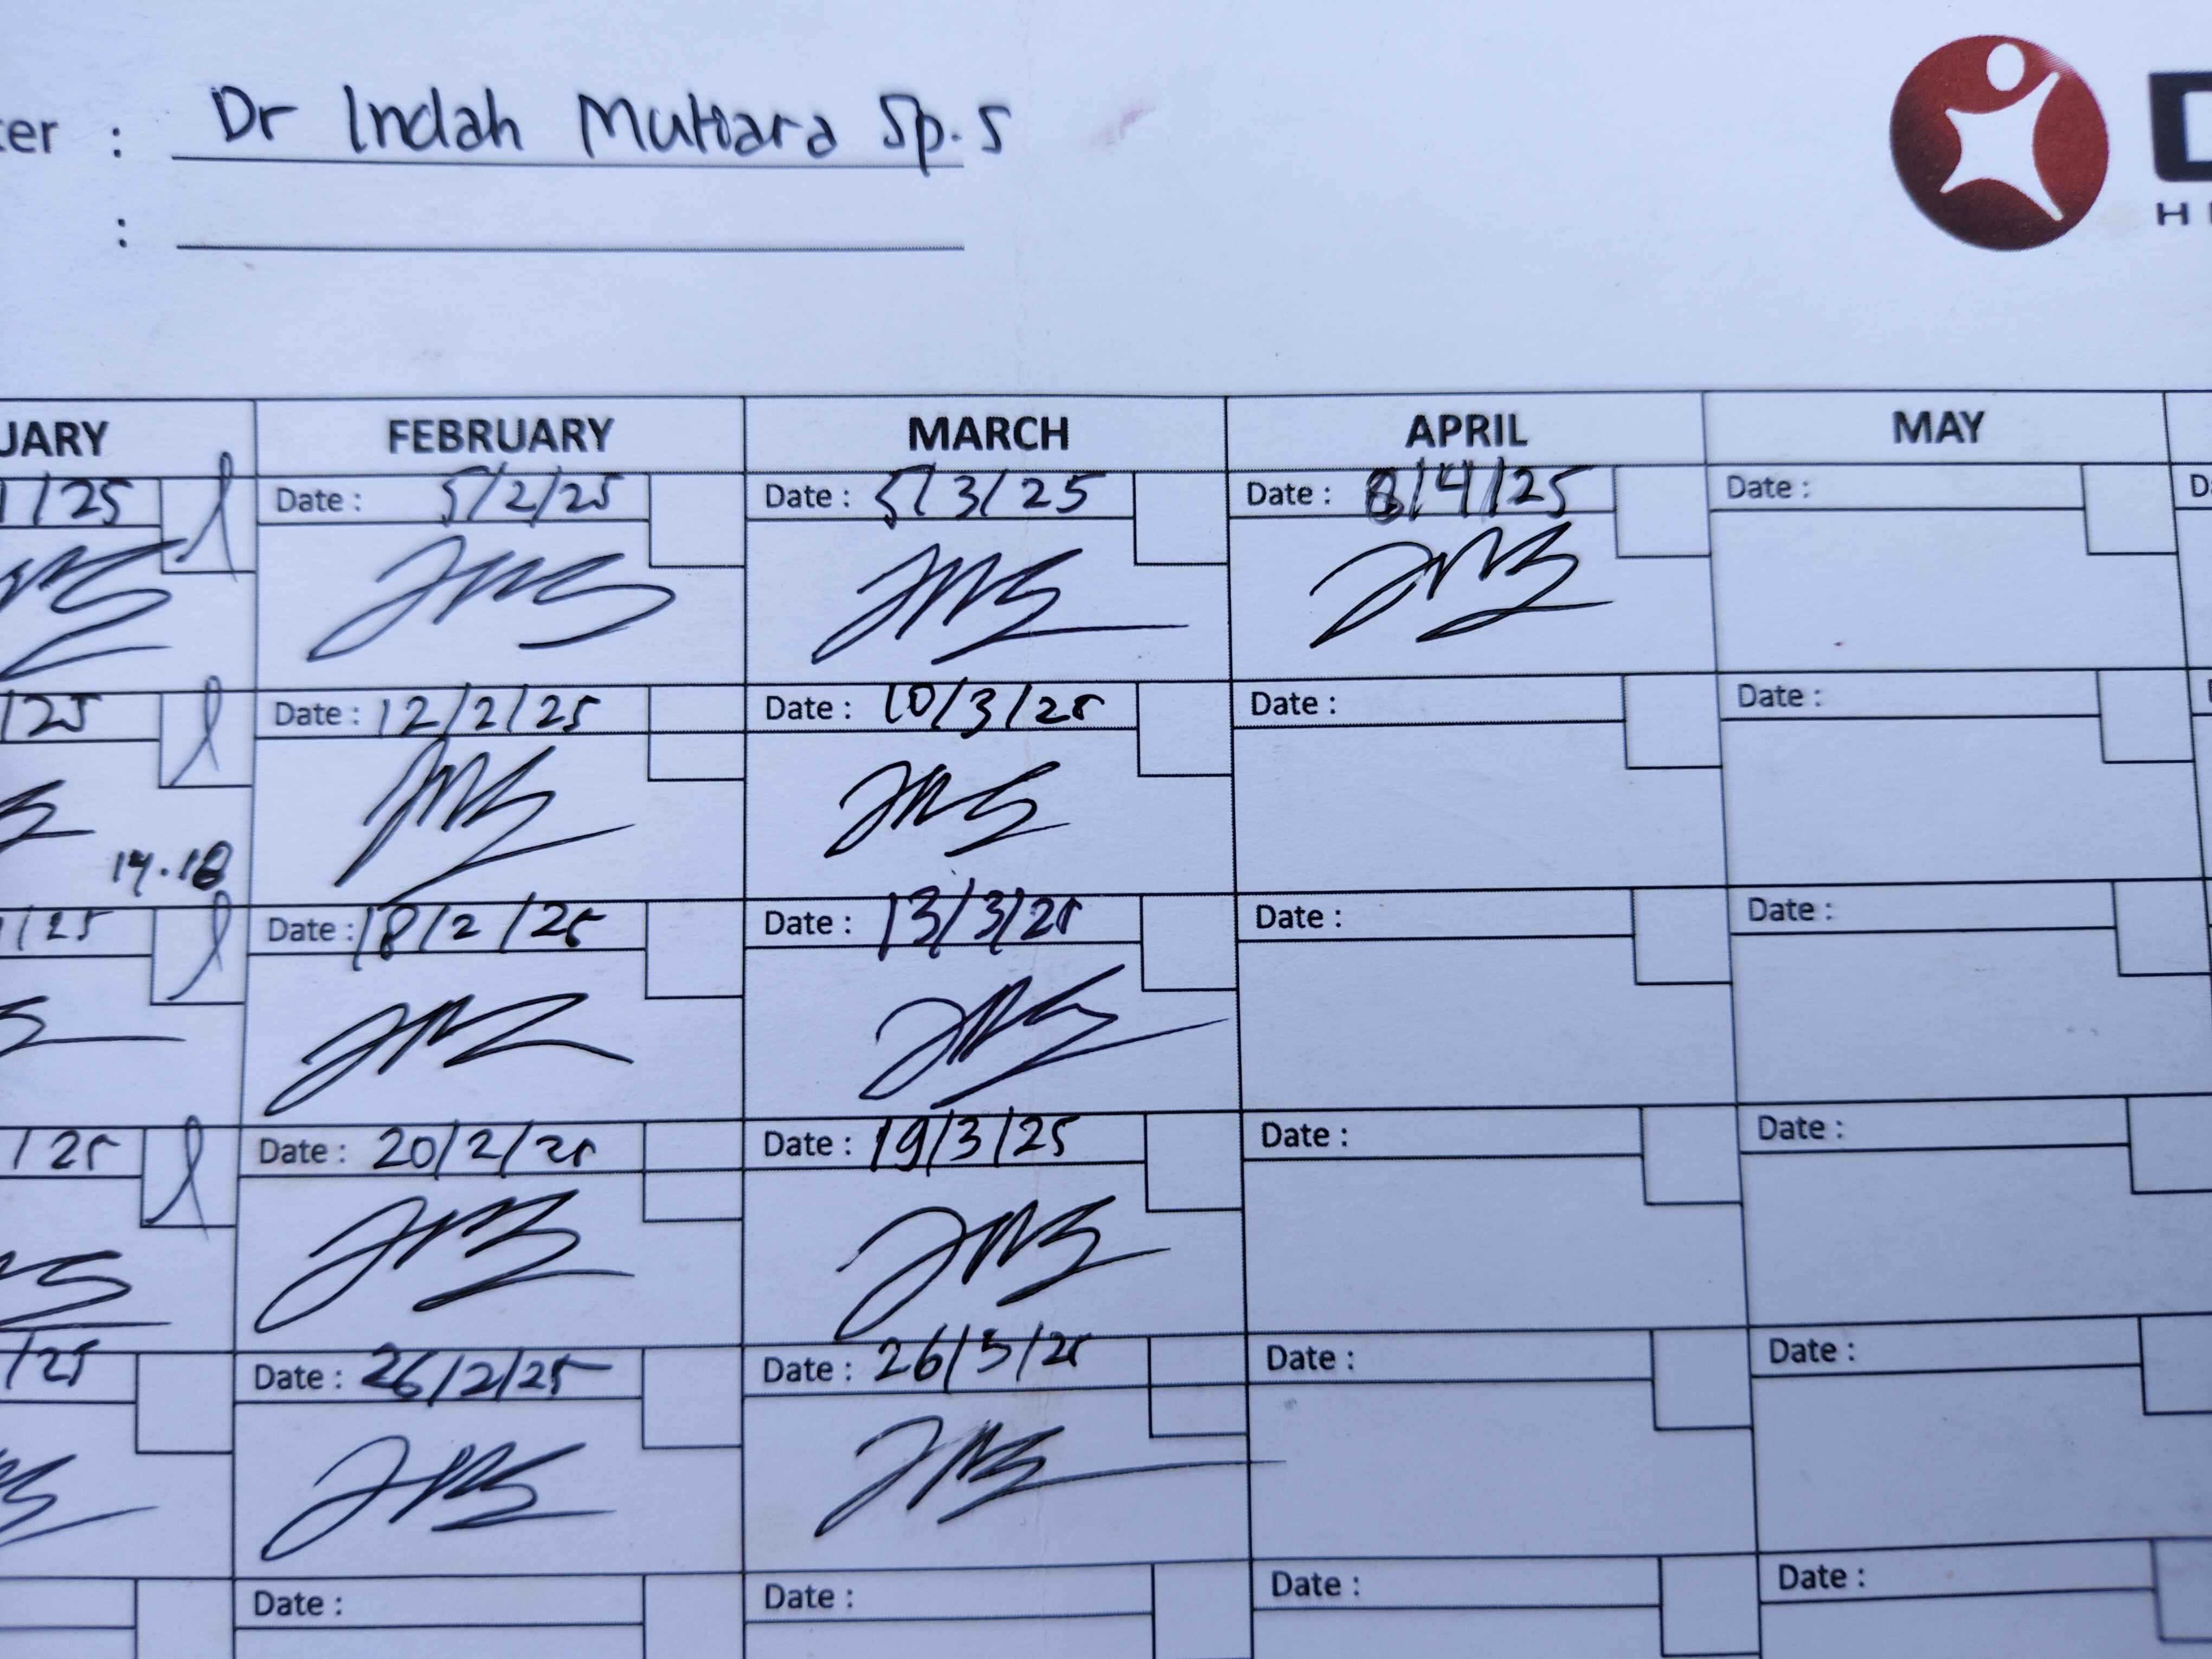 ter : Dr Indah Mutiara Sp.S
:
H
UARY FEBRUARY MARCH APRIL MAY
1/25 Date : 5/2/25 Date : 5/3/25 Date : 8/4/25 Date : D
/25 Date : 12/2/25 Date : 10/3/25 Date : Date :
14.18
1/25 Date : 18/2/25 Date : 13/3/25 Date : Date :
/25 Date : 20/2/25 Date : 19/3/25 Date : Date :
/25 Date : 26/2/25 Date : 26/3/25 Date : Date :
Date : Date : Date : Date :